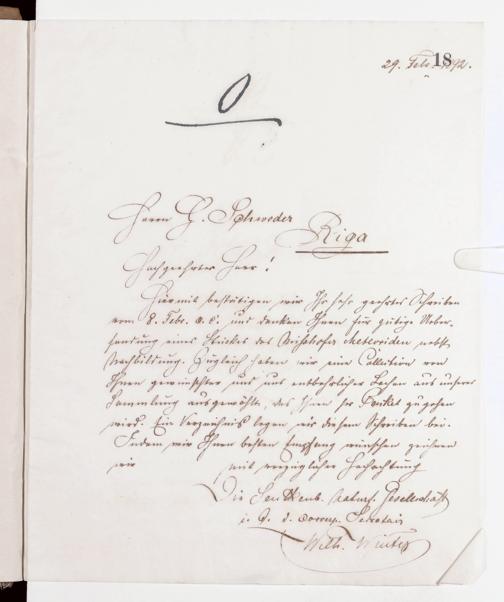 18
29. Febr. 1892.
Herrn G. Schweder
Riga
Hochgeehrter Herr!
Hiermit bestätigen wir Ihr sehr geehrtes Schreiben
vom 8. Febr. a. c. und danken Ihnen für gütige Ueber-
sendung eines Stückes des Misshofer Meteoriden nebst
Nachbildung. Zugleich haben wir eine Collection von
Ihnen gewünschter und uns entbehrlicher Sachen aus unserer
Sammlung ausgewählt, das Ihnen per Postkol zugehen
wird. Ein Verzeichniß legen wir diesem Schreiben bei.
Indem wir Ihnen besten Empfang wünschen zeichnen
wir mit vorzüglicher Hochachtung
Die Senckenb. naturf. Gesellschaft
i. A. d. corresp. Secretair
Wilh. Winter